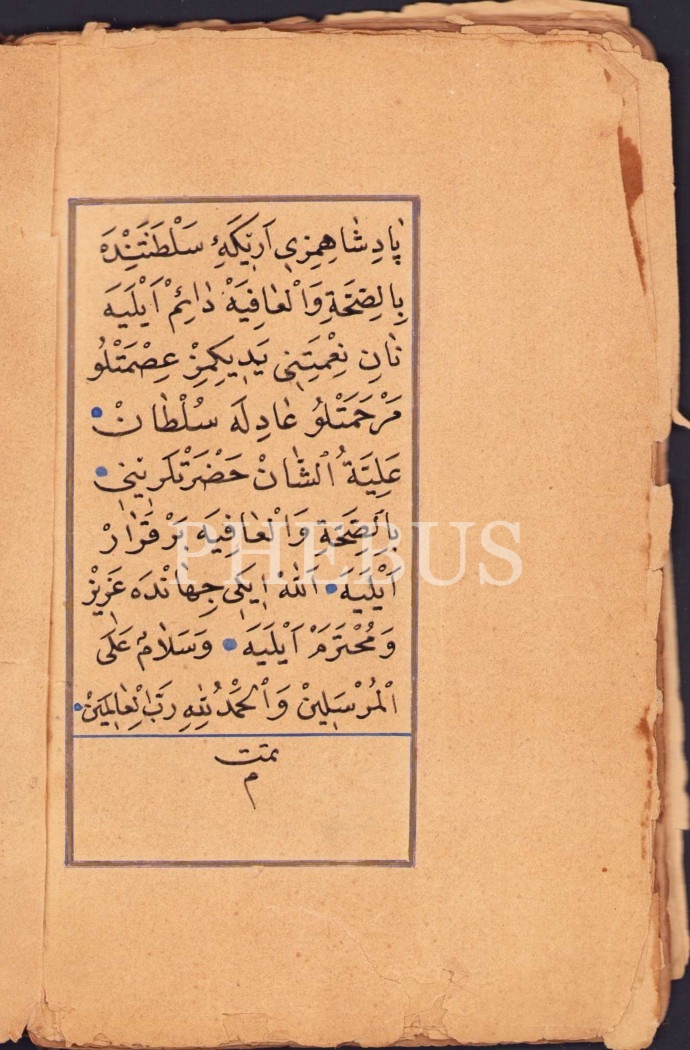 پَادِشَاهِمِزِي اَرِيكَهِٔ سَلْطَنَتِنْدَه
بِالصِّحَّةِ وَالْعَافِيَهْ دَائِمْ اَيْلَيَه
نَانِ نِعْمِتَنِي يَدِيكِمِزْ عِصْمَتْلُو
مَرْحَمَتْلُو عَادِلَه سُلْطَانْ
عَلِيَّةُ الشَّانْ حَضْرَتْلَرِينِي
بِالصِّحَّةِ وَالْعَافِيَه بَرْقَرَارْ
اَيْلَيَه اَللّٰه اِيكِي جِهَانْدَه عَزِيزْ
وَمُحْتَرَمْ اَيْلَيَه وَسَلَامٌ عَلَى
الْمُرْسَلِينْ وَالْحَمْدُ لِلّٰهِ رَبِّ الْعَالَمِينْ
تمت
م
PHEBUS